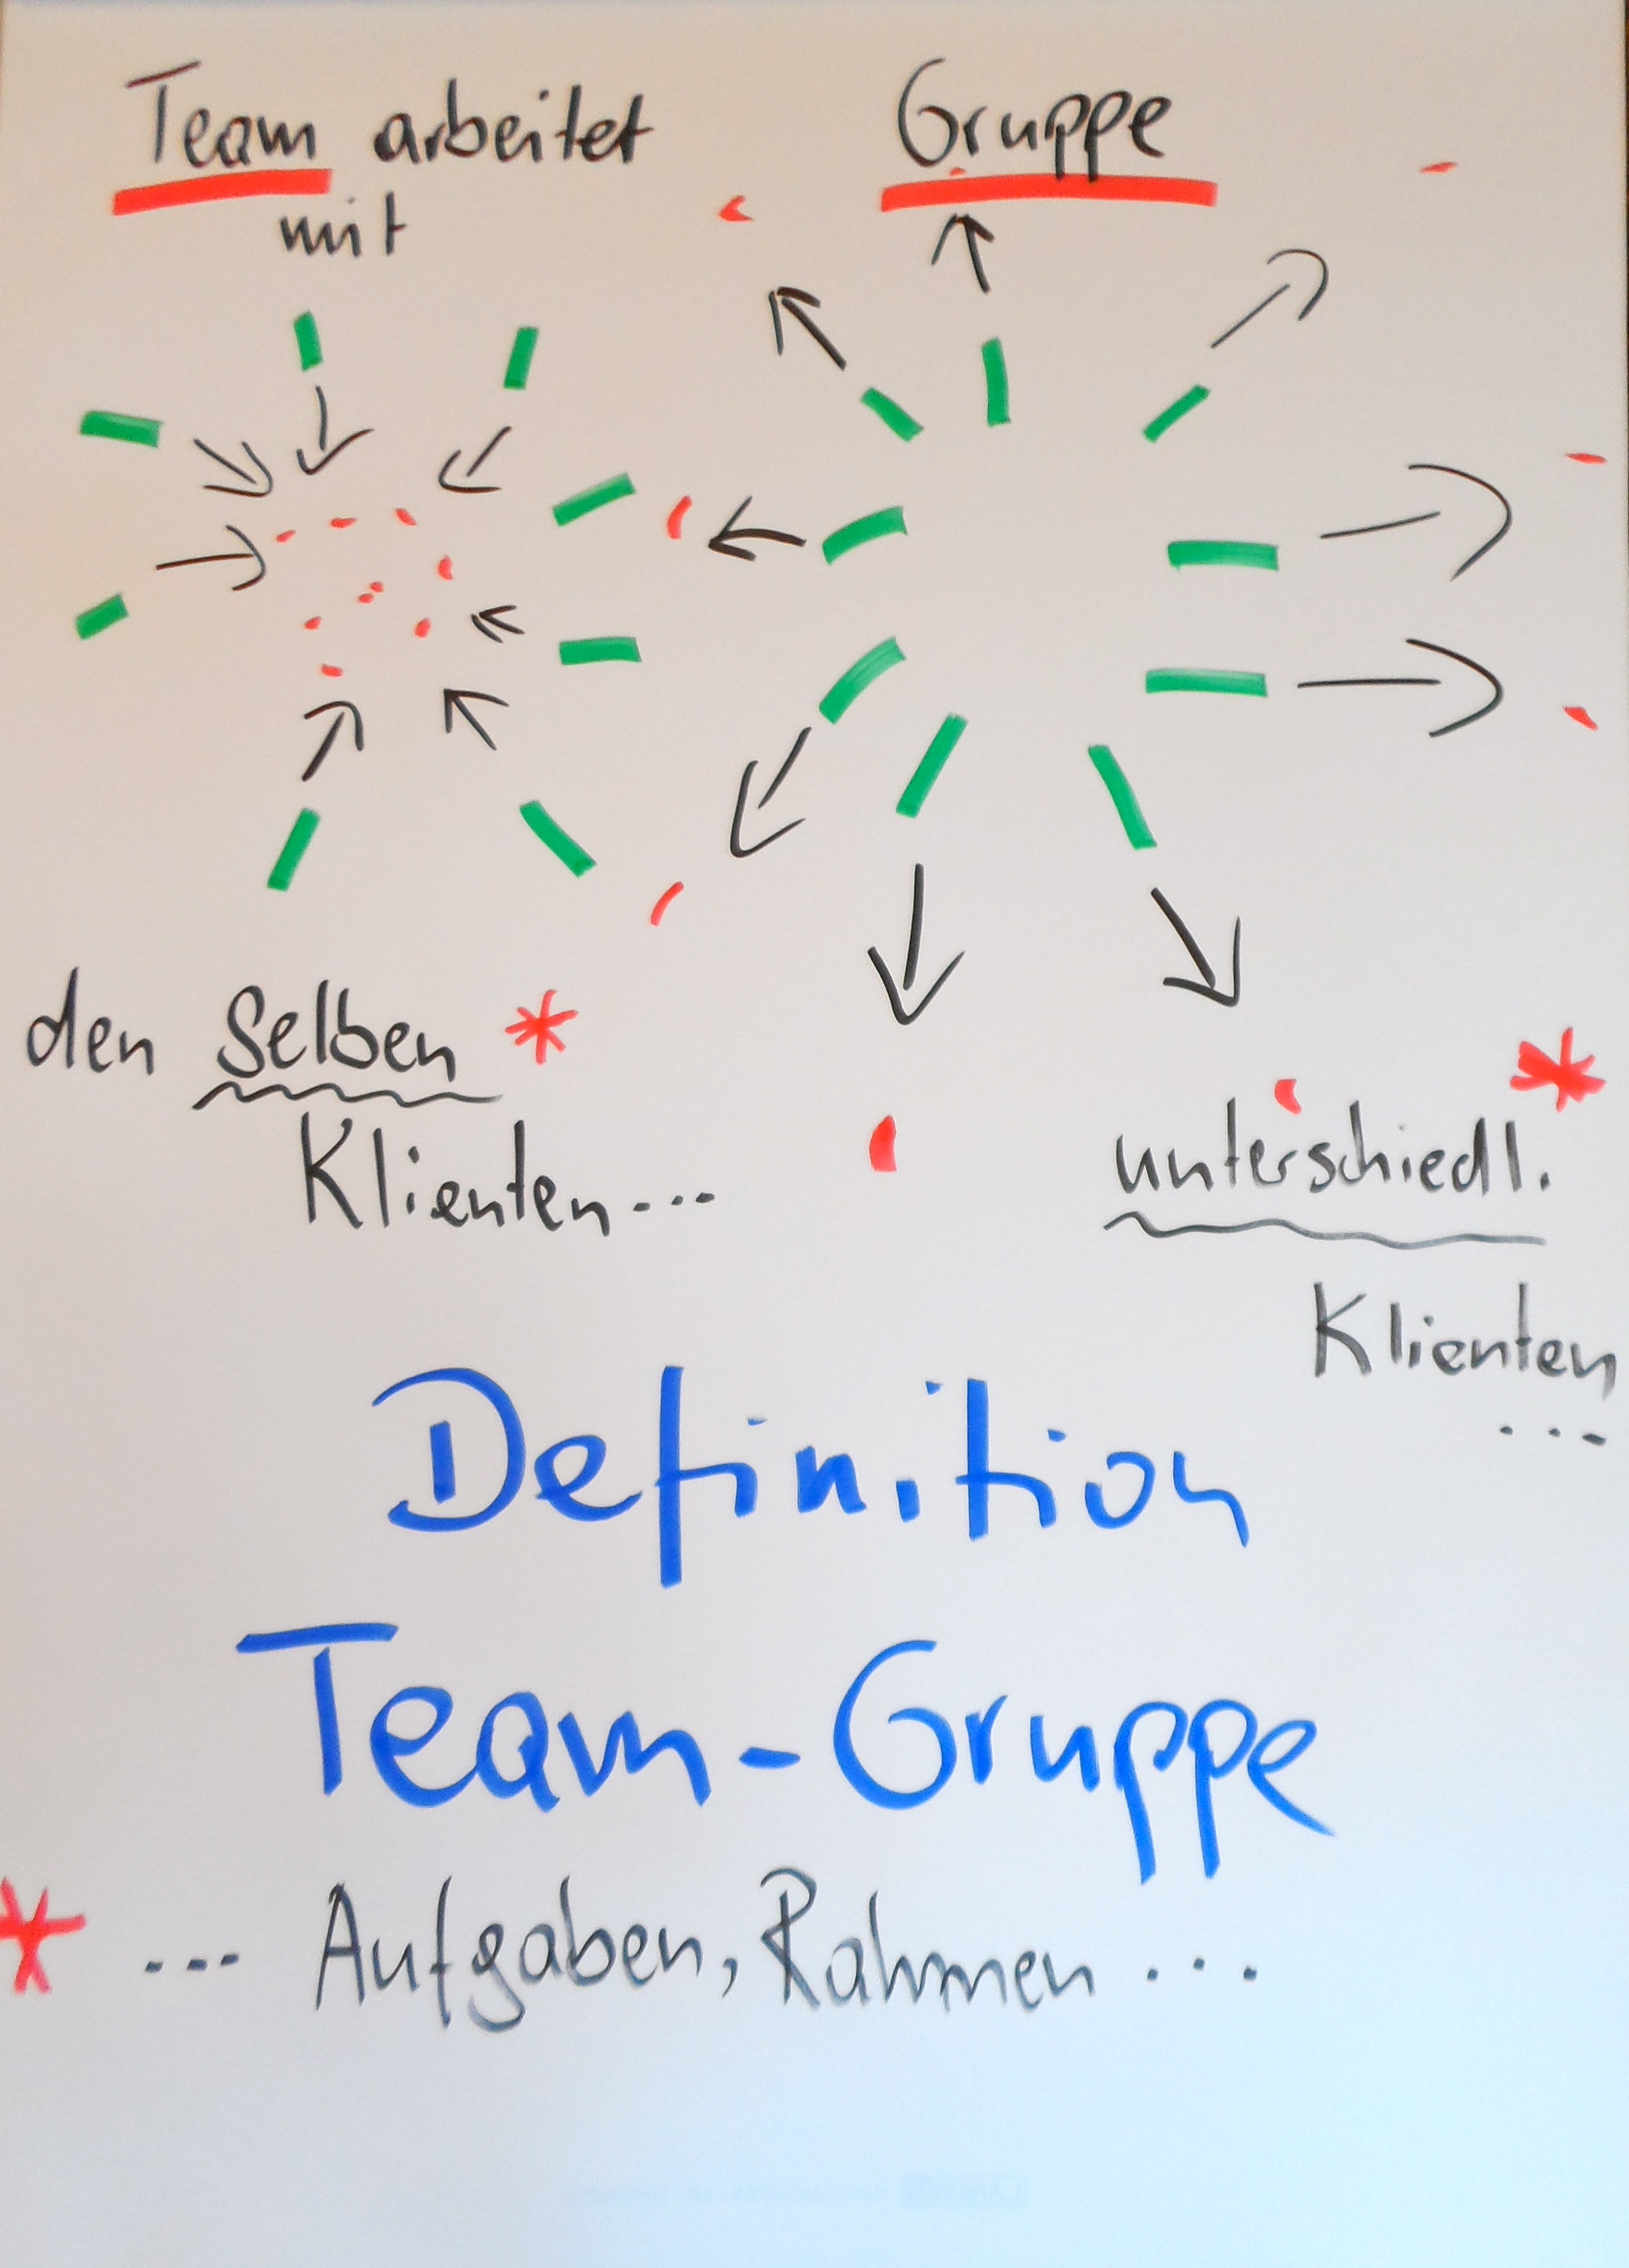 Team arbeitet
mit
den Selben *
Klienten...
Gruppe
unterschiedl. *
Klienten
...
Definition
Team-Gruppe
* ... Aufgaben, Rahmen ...